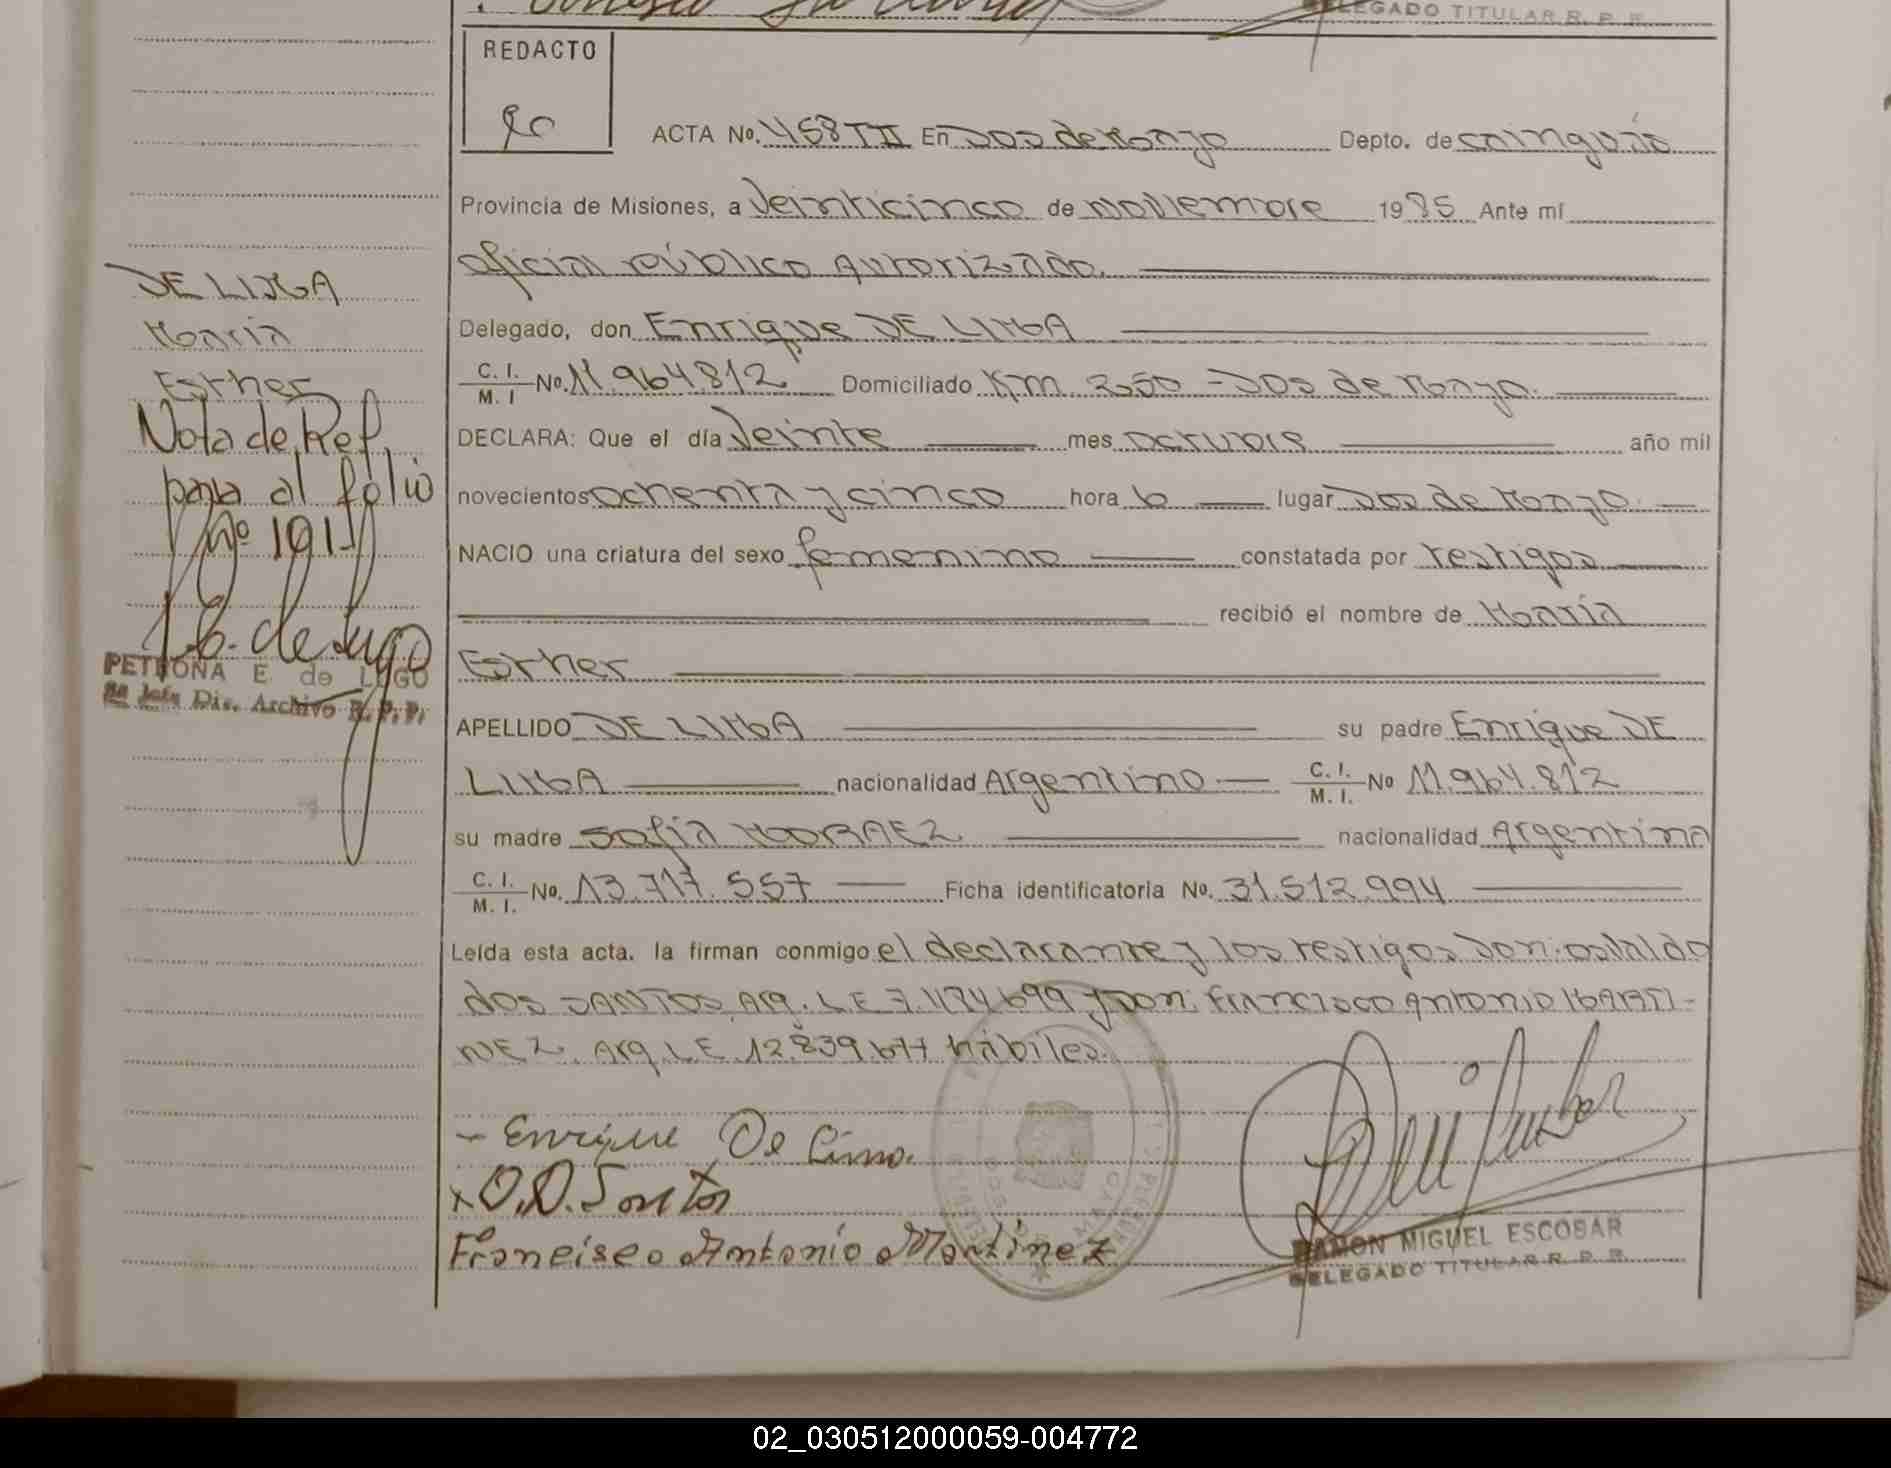 DELEGADO TITULAR R. P. P.
REDACTO
ACTA No. 458 TII En Dos de Mayo Depto. de Cainguás
Provincia de Misiones, a Veinticinco de Noviembre 1985 Ante mí
oficial público Autorizado.
DE LIMA
María
Esther
Nota de Ref.
para al folio
Nº 191
PETRONA E de LUGO
Dis. Archivo R.P.P.
Delegado, don Enrique DE LIMA
C. I. / M. I No. 11.964.812 Domiciliado Km 250 - Dos de Mayo.
DECLARA: Que el día Veinte mes octubre año mil
novecientos ochenta y cinco hora 6 lugar Dos de Mayo.
NACIO una criatura del sexo femenino constatada por testigos
recibió el nombre de María
Esther
APELLIDO DE LIMA su padre Enrique DE
LIMA nacionalidad Argentino C. I. / M. I. No 11.964.812
su madre Sofía MORAEZ nacionalidad Argentina
C. I. / M. I. No. 13.717.557 Ficha identificatoria No. 31.512.994
Leída esta acta, la firman conmigo el declarante y los testigos Don: osvaldo
dos SANTOS, Arg. L E y Don: Francisco Antonio MARTI-
NEZ. Arg. L E. 12.839.677 hábiles.
- Enrique De Lima.
x O.D. Santos
Francisco Antonio Martinez
RAMON MIGUEL ESCOBAR
DELEGADO TITULAR R. P. P.
02_030512000059-004772